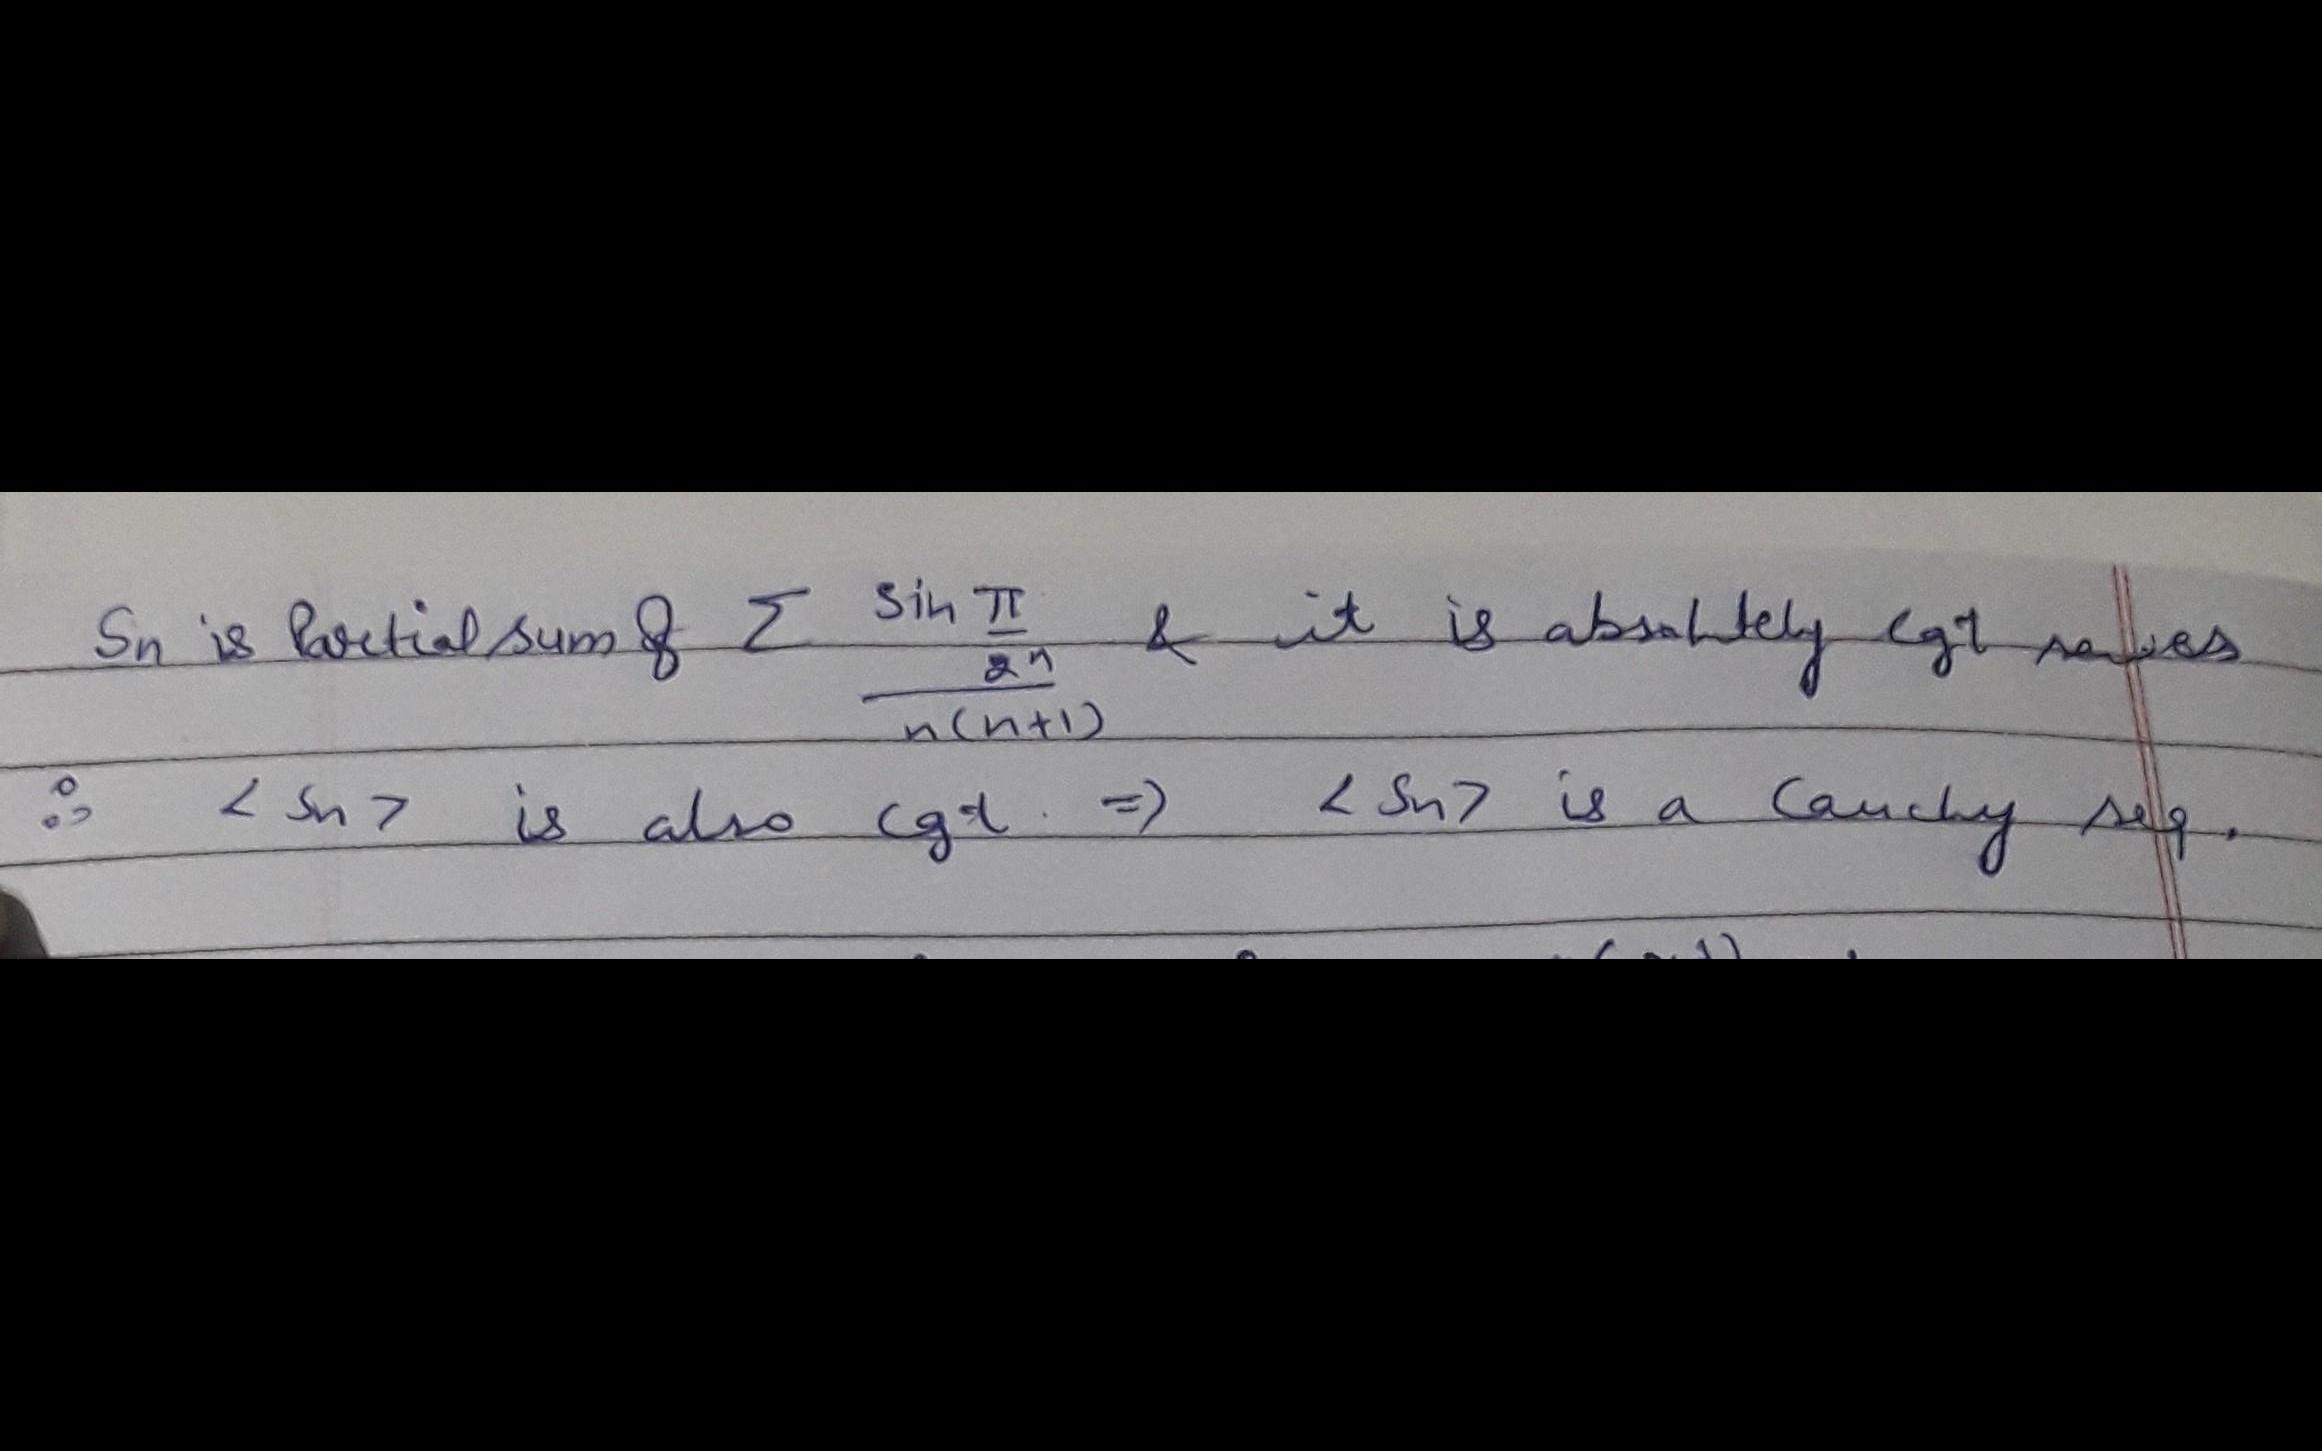 Sn is Partial sum of Σ sin π/2ⁿ / n(n+1) & it is absolutely cgt series
∴ <Sn> is also cgt. => <Sn> is a Cauchy seq.